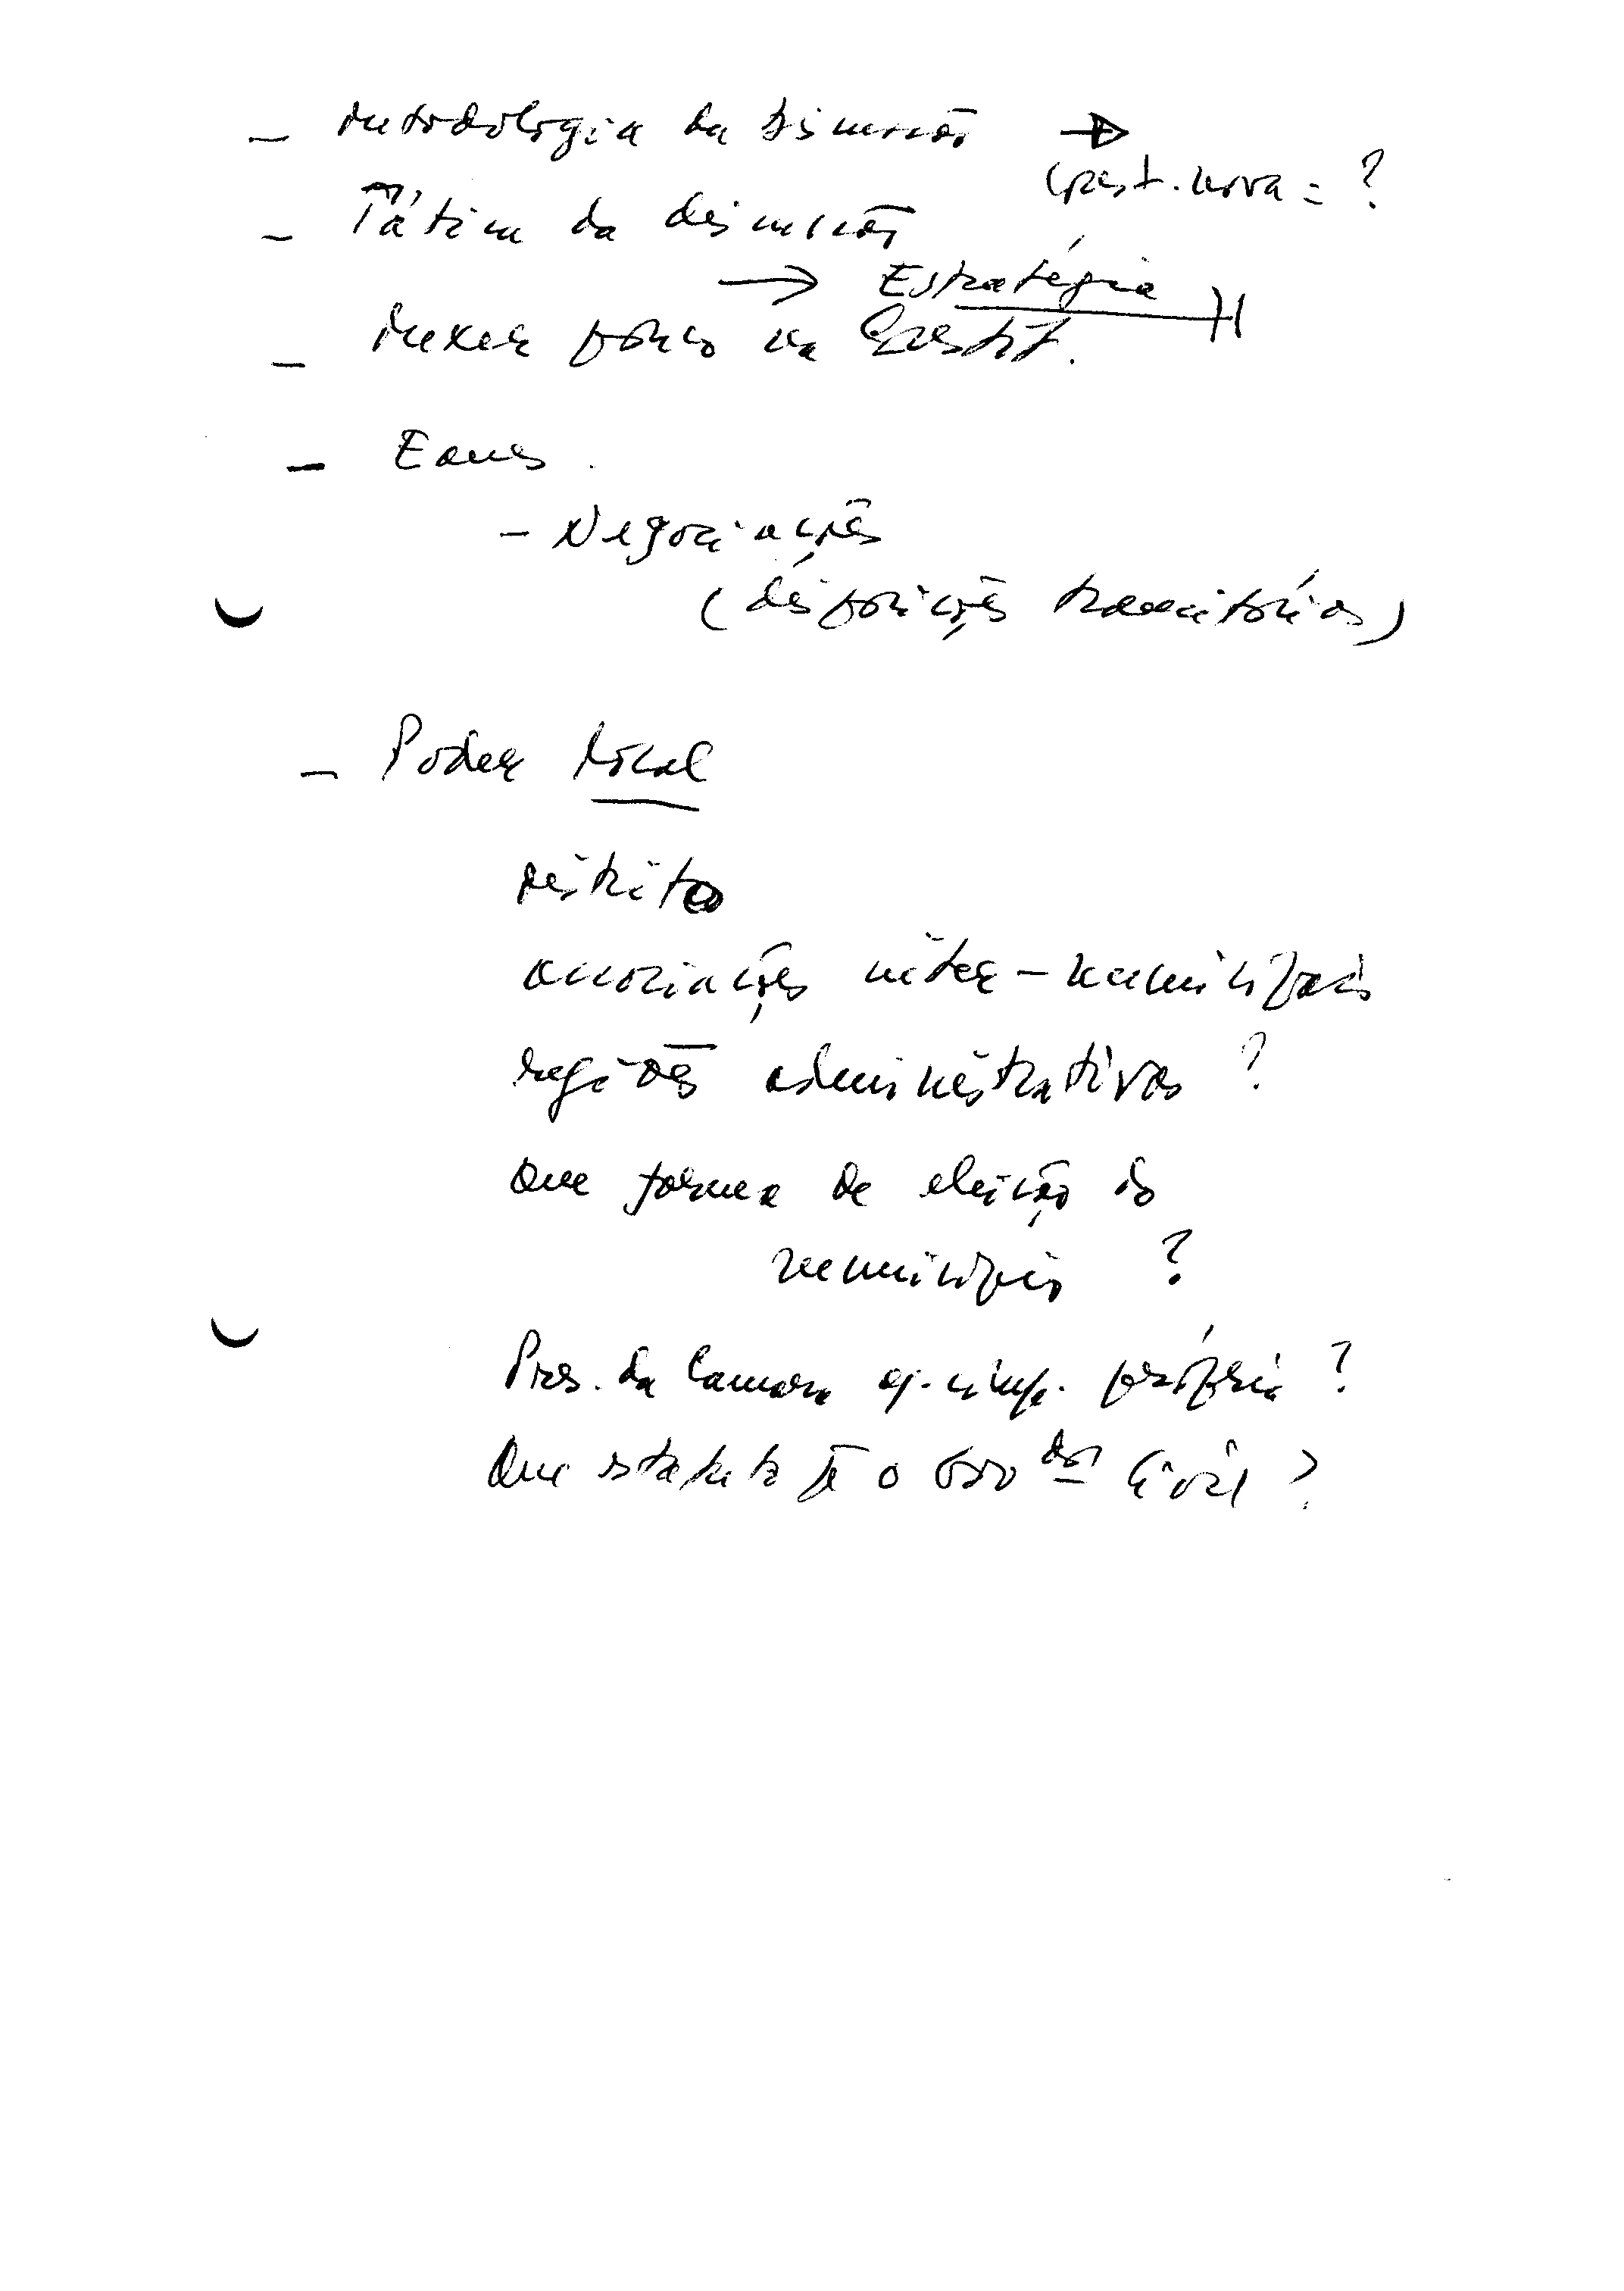 - Metodologia da discussão →
Const. nova = ?
- Tática da discussão
→ Estratégia
- Mexer pouco na Constit.
- Eanes.
- Negociações
(disposições transitórias)
- Poder local
distrito
associações inter-municipais
regiões administrativas ?
Que forma de eleição do
município ?
Pres. da Camara própria ?
Que estatuto o Gov dor Civil ?